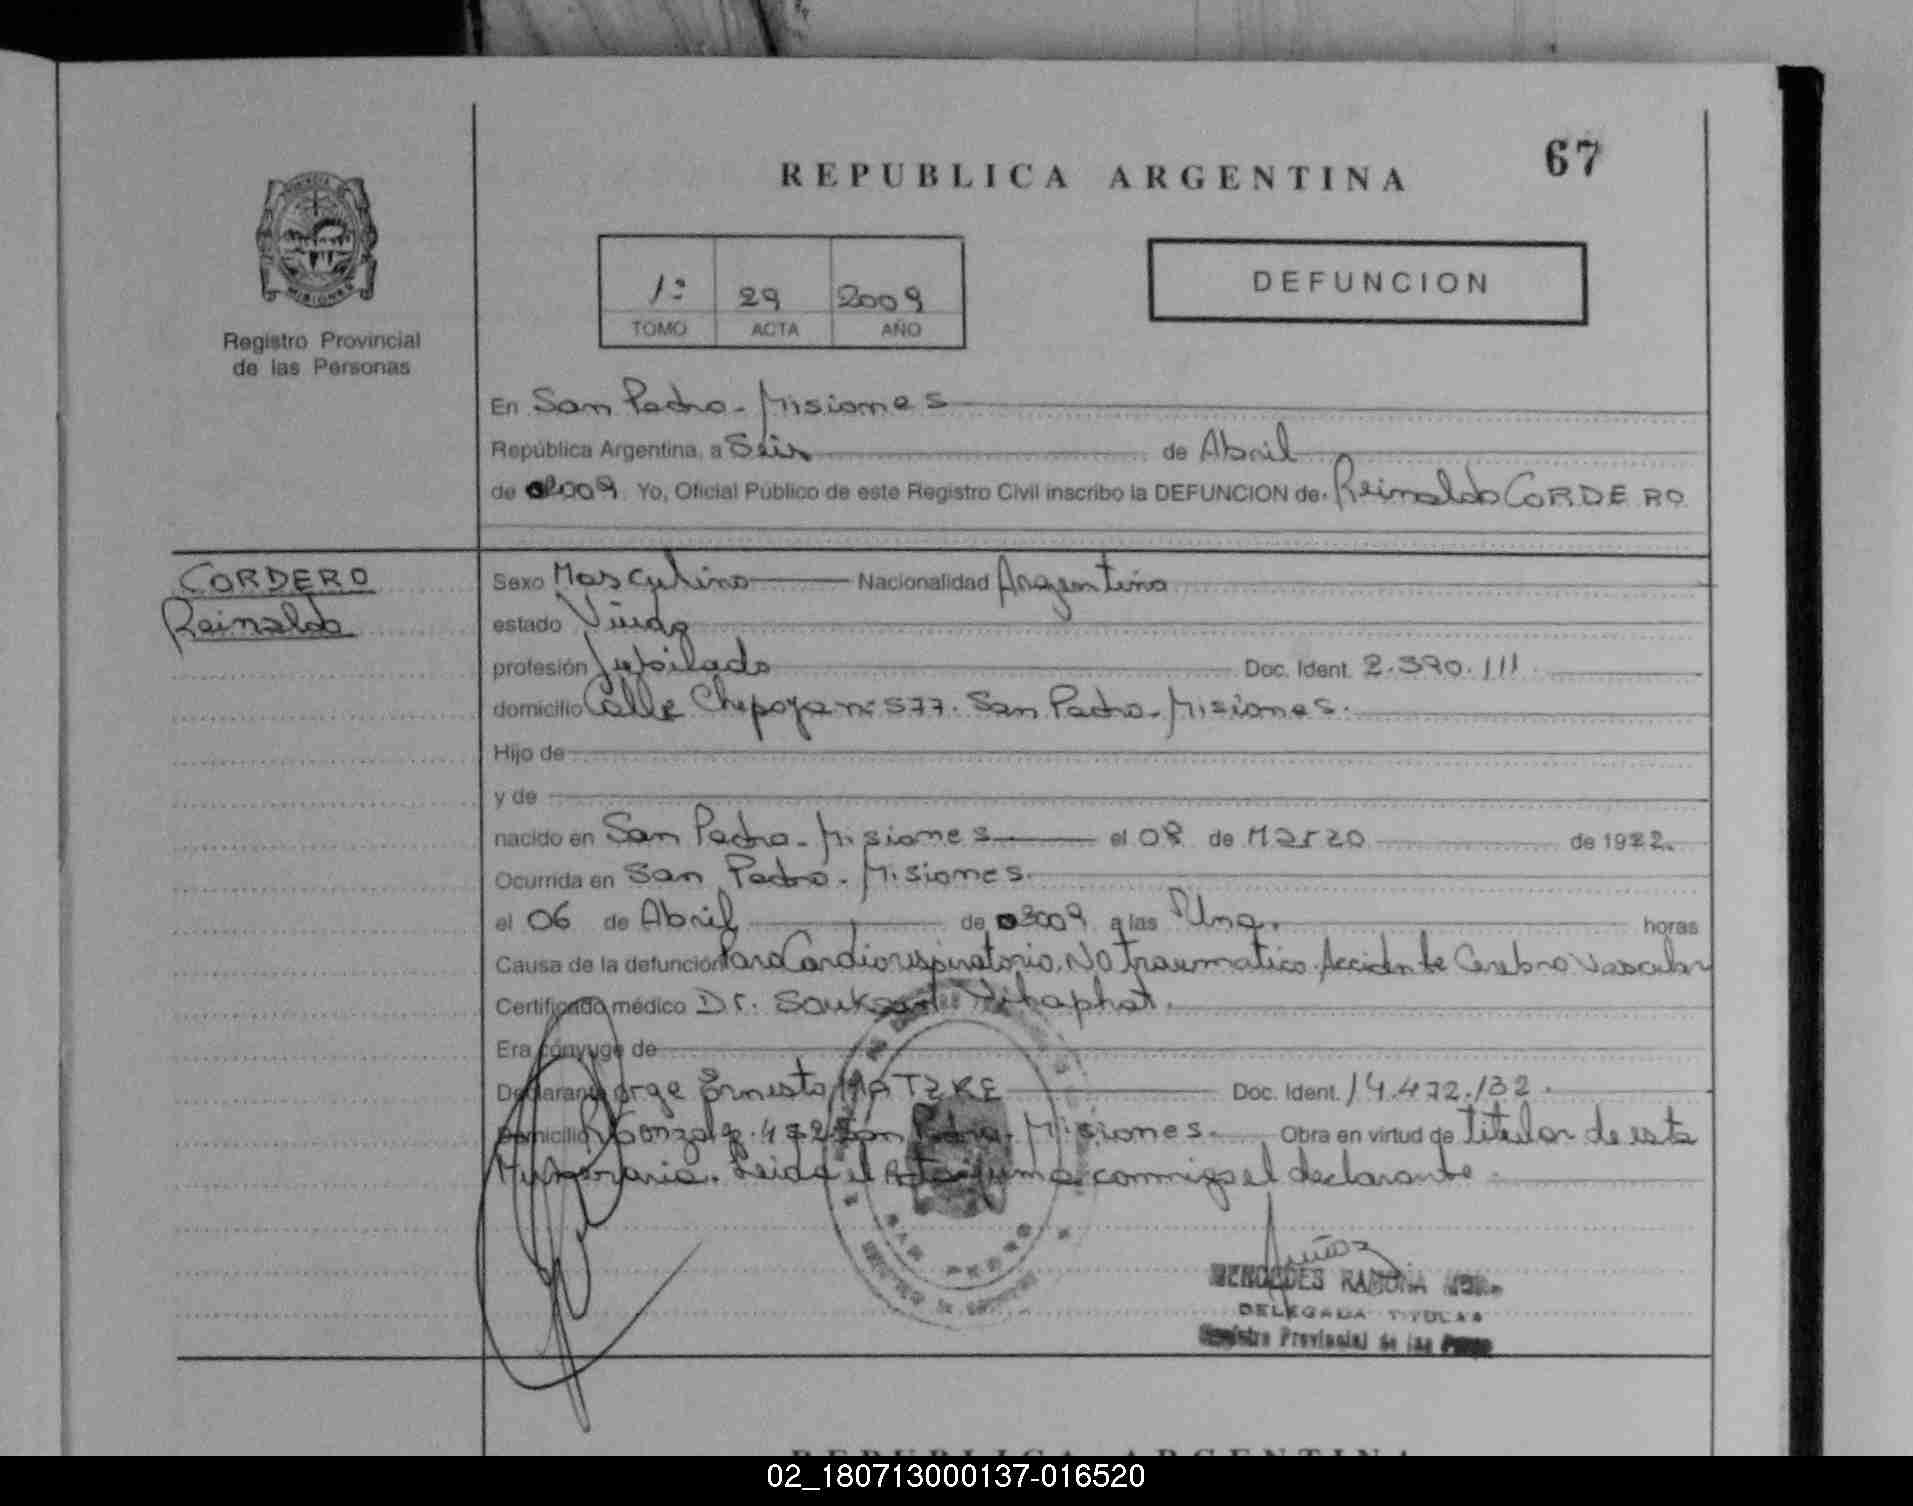 67
REPUBLICA ARGENTINA
MISIONES
Registro Provincial
de las Personas
1º 29 2009
TOMO ACTA AÑO
DEFUNCION
En San Pedro - Misiones
República Argentina, a Seis de Abril
de 2009 Yo, Oficial Público de este Registro Civil inscribo la DEFUNCION de Reinaldo CORDERO
CORDERO
Reinaldo
Sexo Masculino Nacionalidad Argentino
estado Viudo
profesión Jubilado Doc. Ident. 2.390.111
domicilio Calle Chepoya nº 577. San Pedro - Misiones.
Hijo de
y de
nacido en San Pedro - Misiones el 08 de Marzo de 1922.
Ocurrida en San Pedro - Misiones.
el 06 de Abril de 2009 a las Una. horas
Causa de la defunción Paro Cardiorespiratorio. No traumatico. Accidente Cerebro Vascular
Certificado médico Dr. Souksan Vihaphat.
Era cónyuge de
Declarante Jorge Ernesto MATZKE Doc. Ident. 14.472.132.
Domicilio R. Gonzalez. 472 San Pedro - Misiones. Obra en virtud de titular de esta
Leida el Acta firma conmigo el declarante
SAN PEDRO
Muñoz
MERCEDES RAMONA
DELEGADA TITULAR
Registro Provincial de las
REPUBLICA ARGENTINA
02_180713000137-016520